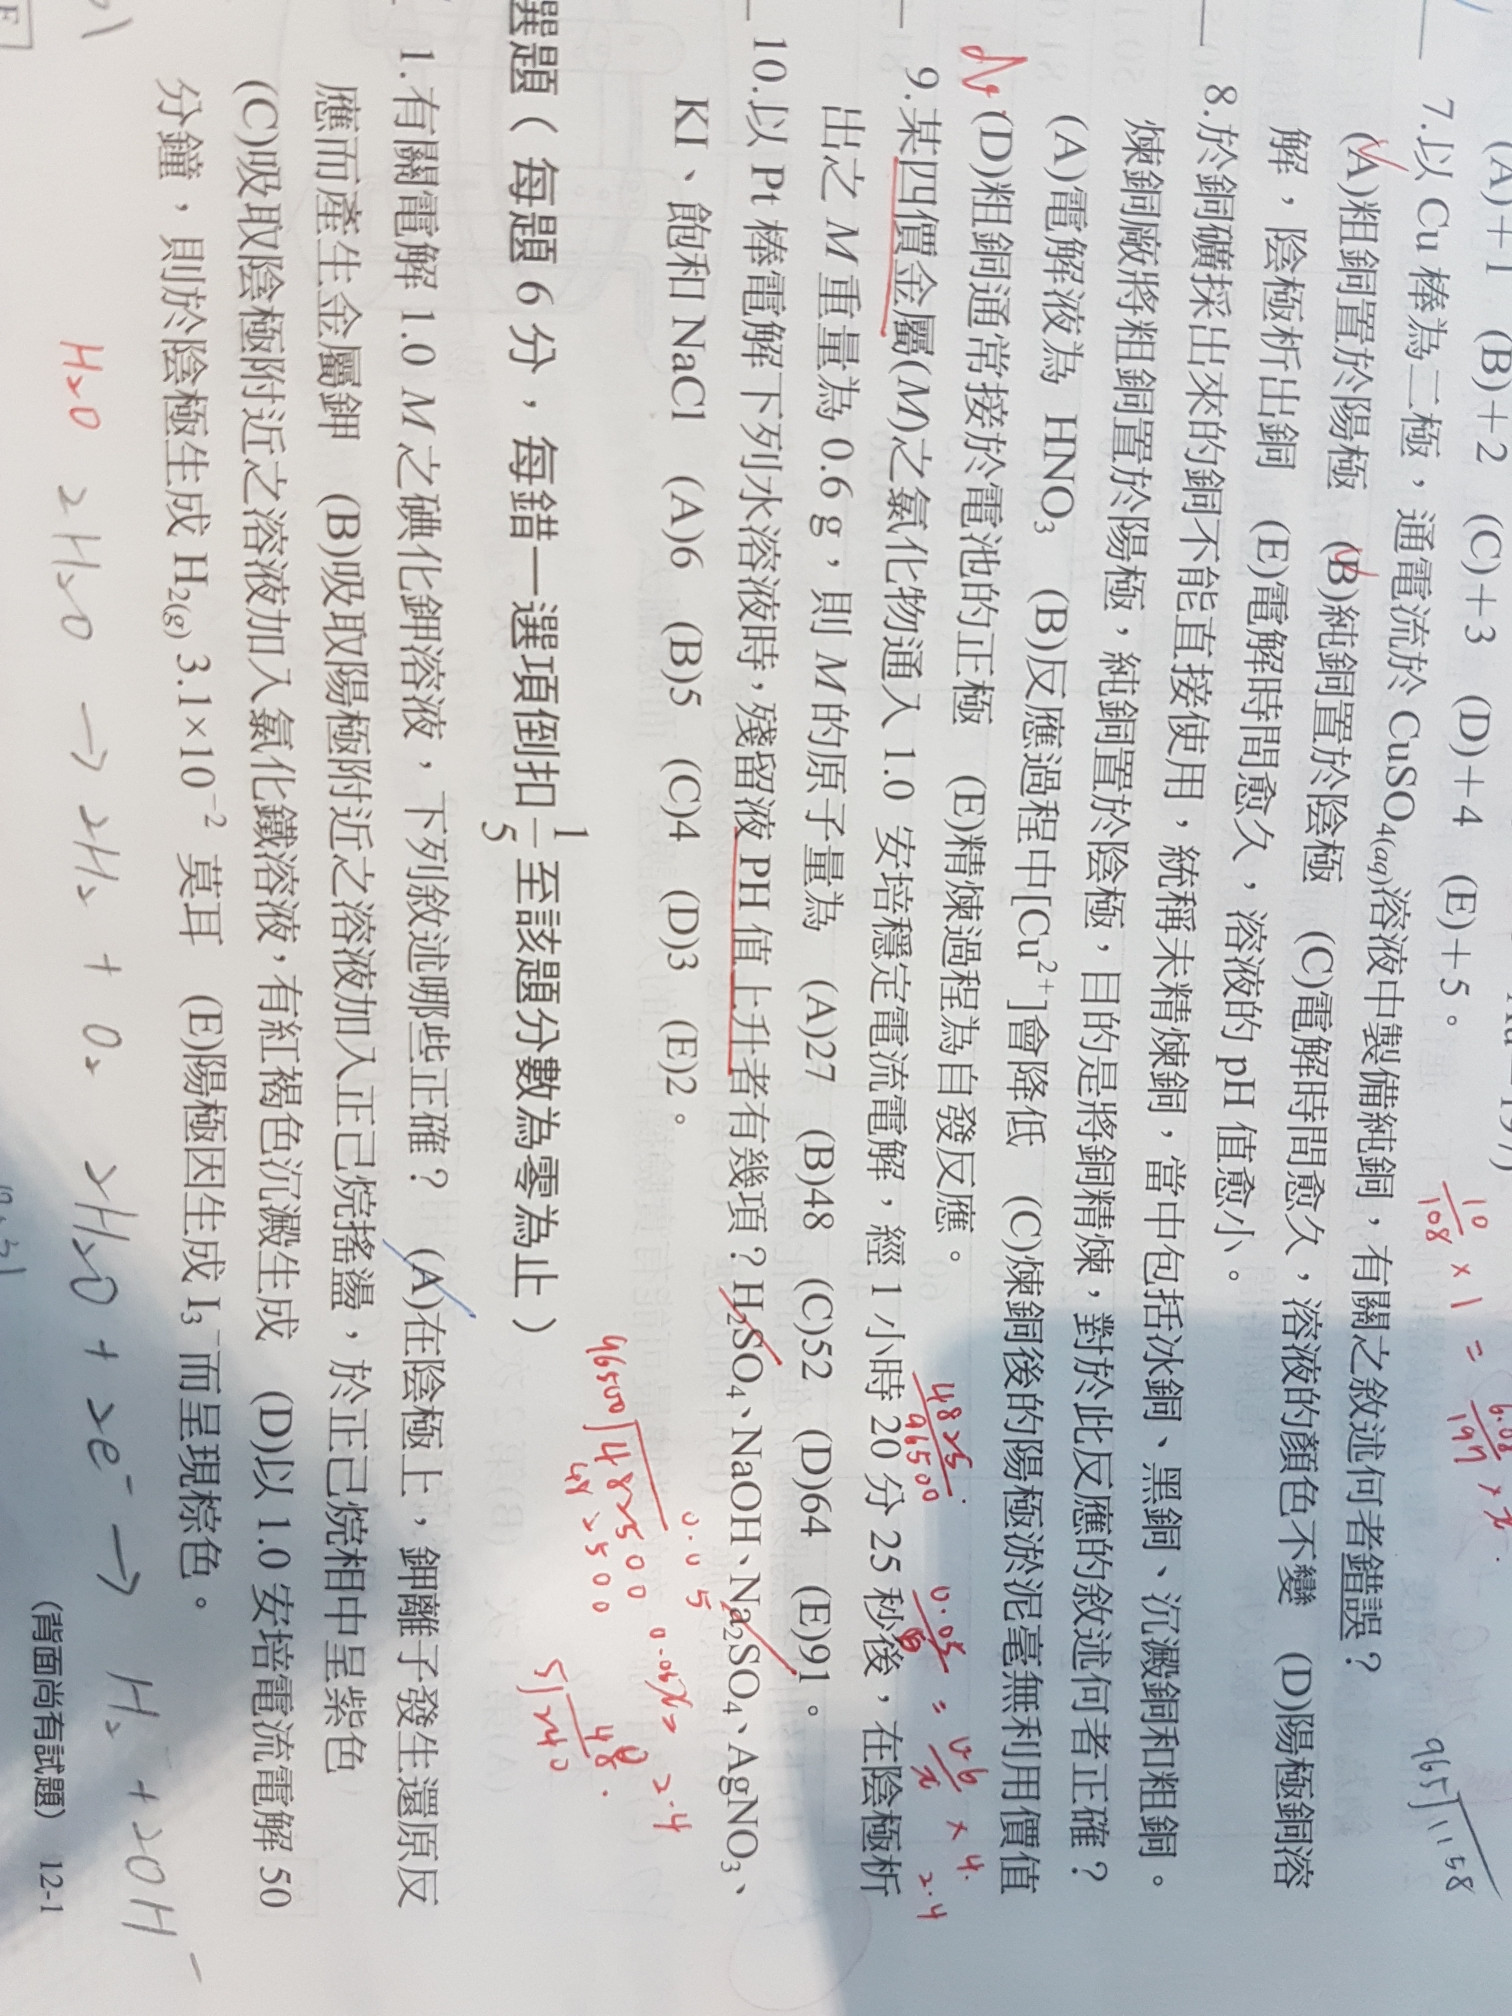 (A)+1 (B)+2 (C)+3 (D)+4 (E)+5。
7.以 Cu 棒為二極，通電流於 CuSO4(aq)溶液中製備純銅，有關之敘述何者錯誤？
(A)粗銅置於陽極 (B)純銅置於陰極 (C)電解時間愈久，溶液的顏色不變 (D)陽極銅溶
解，陰極析出銅 (E)電解時間愈久，溶液的 pH 值愈小。
8.於銅礦採出來的銅不能直接使用，統稱未精煉銅，當中包括冰銅、黑銅、沉澱銅和粗銅。
煉銅廠將粗銅置於陽極，純銅置於陰極，目的是將銅精煉，對於此反應的敘述何者正確？
(A)電解液為 HNO3 (B)反應過程中[Cu2+]會降低 (C)煉銅後的陽極淤泥毫無利用價值
(D)粗銅通常接於電池的正極 (E)精煉過程為自發反應。
9.某四價金屬(M)之氯化物通入 1.0 安培穩定電流電解，經 1 小時 20 分 25 秒後，在陰極析
出之 M 重量為 0.6 g，則 M 的原子量為 (A)27 (B)48 (C)52 (D)64 (E)91。
10.以 Pt 棒電解下列水溶液時，殘留液 PH 值上升者有幾項？H2SO4、NaOH、Na2SO4、AgNO3、
KI、飽和 NaCl (A)6 (B)5 (C)4 (D)3 (E)2。
選題（每題 6 分，每錯一選項倒扣 1/5 至該題分數為零為止）
1.有關電解 1.0 M 之碘化鉀溶液，下列敘述哪些正確？ (A)在陰極上，鉀離子發生還原反
應而產生金屬鉀 (B)吸取陽極附近之溶液加入正己烷搖盪，於正己烷相中呈紫色
(C)吸取陰極附近之溶液加入氯化鐵溶液，有紅褐色沉澱生成 (D)以 1.0 安培電流電解 50
分鐘，則於陰極生成 H2(g) 3.1×10−2 莫耳 (E)陽極因生成 I3−而呈現棕色。
（背面尚有試題） 12-1
10/108 × 1 =
965 1158
4825/96500
0.05 = 0.6/x × 4
2.4
96500 482500
482500
0.05
0.05x = 2.4
5 240
48
H2O
2H2O → 2H2 + O2
2H2O + 2e− → H2 + 2OH−